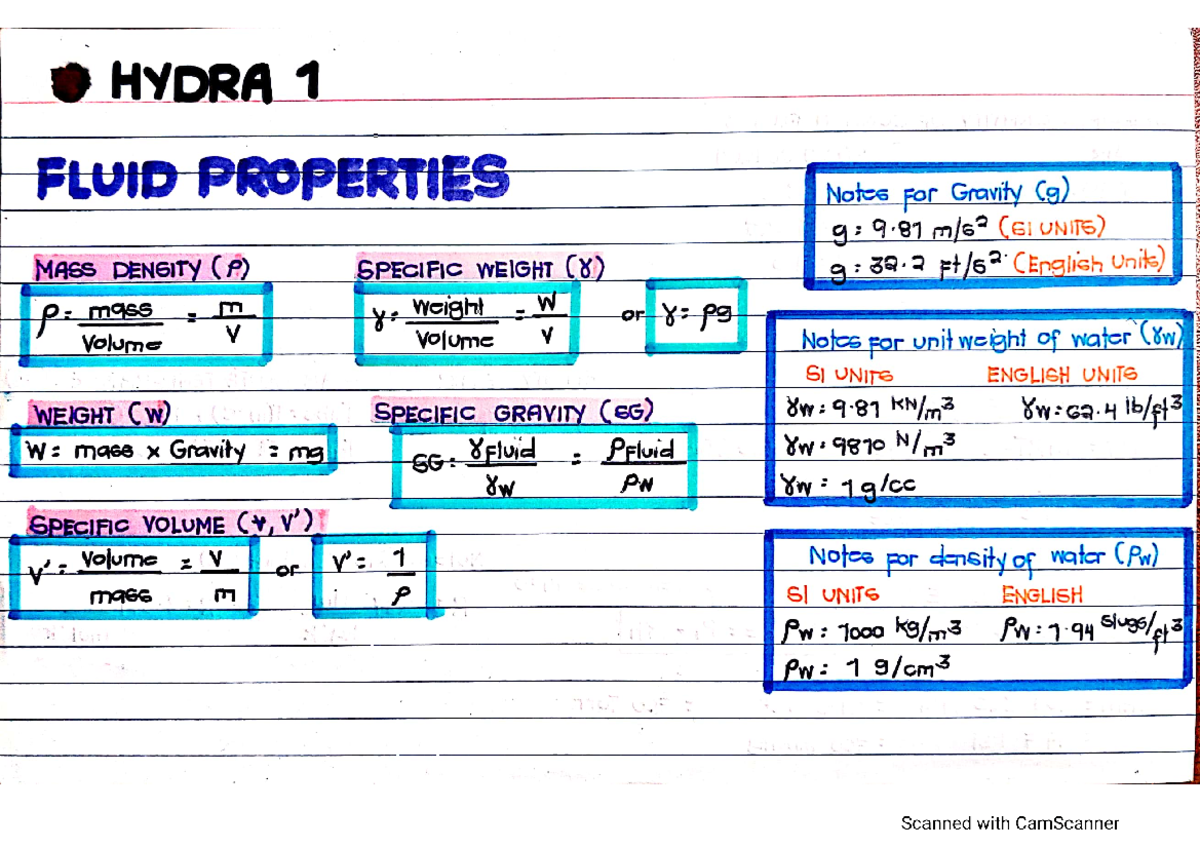 HYDRA 1
FLUID PROPERTIES
MASS DENSITY (ρ)
ρ = mass / Volume = m / V
SPECIFIC WEIGHT (γ)
γ = Weight / Volume = W / V or γ = ρg
WEIGHT (W)
W = mass x Gravity = mg
SPECIFIC GRAVITY (SG)
SG = γFluid / γW = ρFluid / ρW
SPECIFIC VOLUME (V, V')
V' = Volume / mass = V / m or V' = 1 / ρ
Notes for Gravity (g)
g = 9.81 m/s² (SI UNITS)
g = 32.2 ft/s² (English Units)
Notes for unit weight of water (γw)
SI UNITS ENGLISH UNITS
γw = 9.81 KN/m³ γw = 62.4 lb/ft³
γw = 9810 N/m³
γw = 1 g/cc
Notes for density of water (ρw)
SI UNITS ENGLISH
ρw = 1000 kg/m³ ρw = 1.94 slugs/ft³
ρw = 1 g/cm³
Scanned with CamScanner